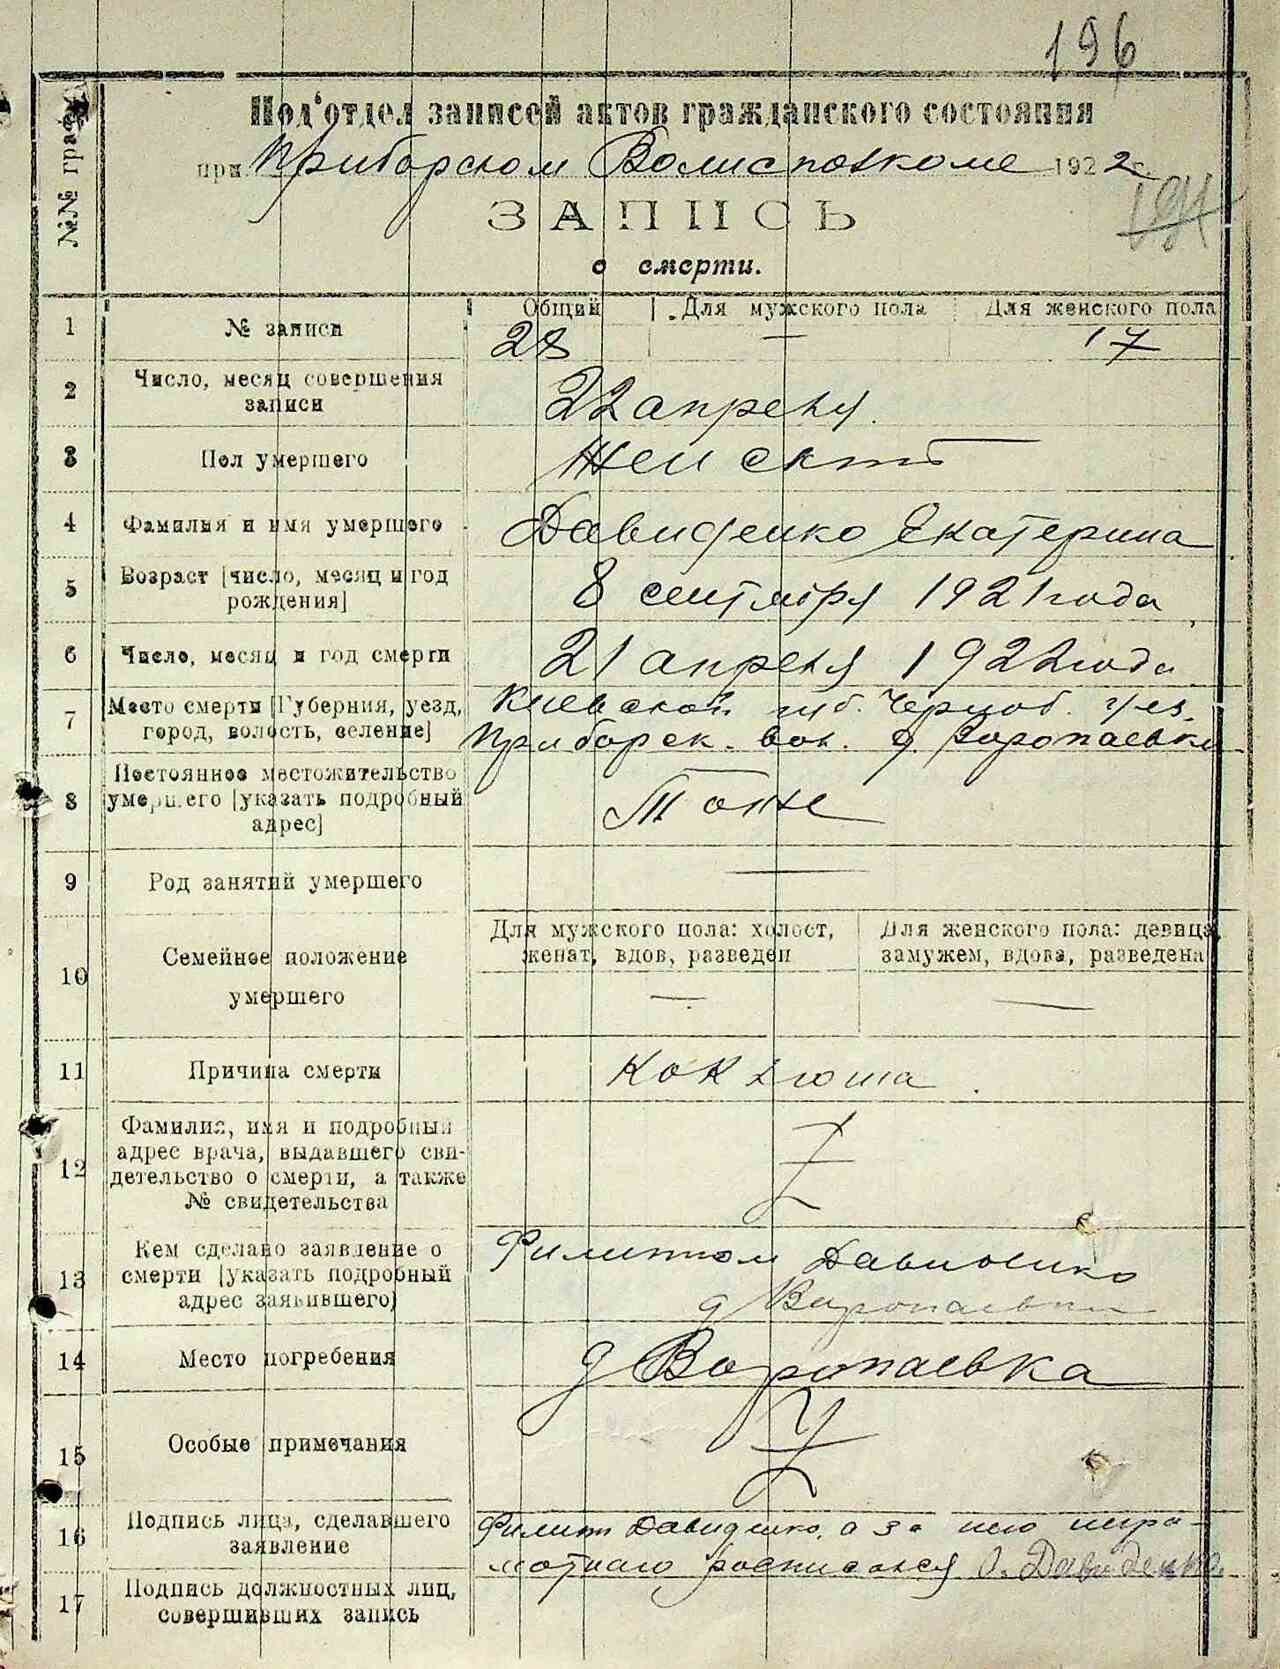 196
Под'отдел записей актов гражданского состояния
при Приборском Волисполкоме 1922 г.
194
ЗАПИСЬ
о смерти.
№№ граф
Общий Для мужского пола Для женского пола
1 № записи 28 — 17
2 Число, месяц совершения
записи
22 апреля.
3 Пол умершего Женский
4 Фамилия и имя умершего Давиденко Екатерина
5 Возраст [число, месяц и год
рождения]
8 сентября 1921 года
6 Число, месяц и год смерти 21 апреля 1922 года
7 Место смерти [Губерния, уезд,
город, волость, селение]
Киевской губ. Черноб. уез.
Приборск. вол. д. Воропаевка
8 Постоянное местожительство
умершего [указать подробный
адрес]
Тоже
9 Род занятий умершего —
10 Семейное положение
умершего
Для мужского пола: холост,
женат, вдов, разведен
—
Для женского пола: девица,
замужем, вдова, разведена
—
11 Причина смерти Коклюша.
12 Фамилия, имя и подробный
адрес врача, выдавшего сви-
детельство о смерти, а также
№ свидетельства
13 Кем сделано заявление о
смерти [указать подробный
адрес заявившего)
Филипом Давиденко
д Воропаевки
14 Место погребения д Воропаевка
15 Особые примечания
16 Подпись лица, сделавшего
заявление
Филип Давиденко, а за него негра-
мотнаго росписался Давиденко
17 Подпись должностных лиц,
совершивших запись